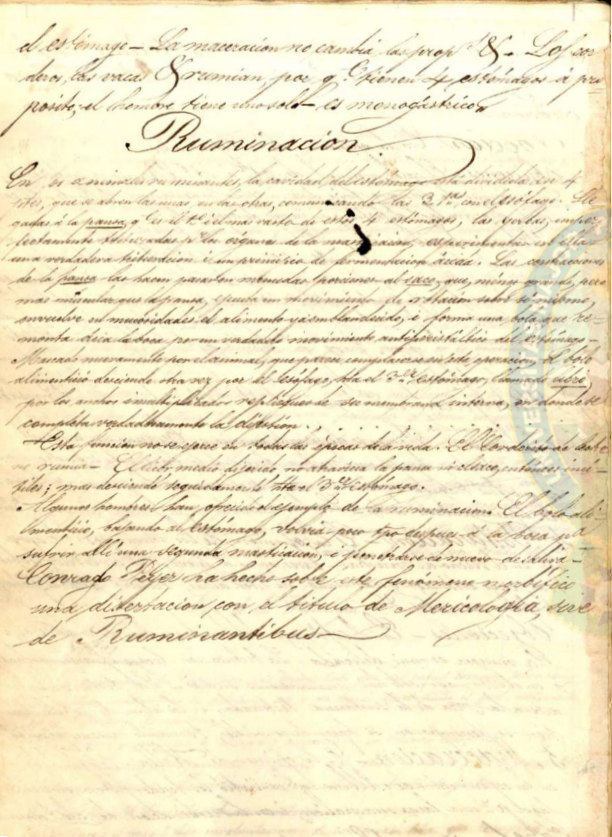 el estómago – La maceracion no cambia las prop.s &.– Los cor
deros, las vacas & rumian, por q.e tienen 4 estómagos á pro
pósito; el hombre tiene uno solo – es monogástrico.
Ruminacion.
En los animales ruminantes, la cavidad del estómago está dividida en 4
que se abren las unas en las otras, comunicando las 3 1.as con el esófago. Lle
gadas á la pansa, q.e es el 1.o i el mas vasto de estos 4 estómagos, las yerbas, imper
fectamente trituradas p.r los órganos de la masticacion, esperimentan en ella
una verdadera i un principio de fermentacion ácida. Las contracciones
de la pansa las hacen pasar en menudas porciones al saco, que, ménos grande, pero
mas musculár que la pansa, ejecuta un movimiento de rotacion sobre sí mismo,
envuelve en mucosidades el alimento ya emblandecido, i forma una bola que re
monta ácia la boca por un verdadero movimiento antiperistáltico del estómago.–
Mascado nuevamente por el animal, que parece complacerse en esta operacion, el bolo
alimenticio desciende otra vez por el esófago, hta el 3.er estómago, llamado libro,
por los anchos i multiplicados repliegues de su membrana interna, en donde se
completa verdaderamente la dijestion.
Esta funcion no se ejerce en todas las épocas de la vida. El corderito de
no rumia – medio dijerida no atraviesa la pansa ni el saco, entónces inu
tiles; mas desciende seguidamente hta el 3.er estómago.
Algunos hombres han ofrecido el ejemplo de la ruminacion. El bolo ali
menticio, bajando al estómago, volvia poco tpo despues á la boca pa
sufrir allí una segunda masticacion, i penetrarse de nuevo de saliva –
Conrado Peyer ha hecho sobre este fenómeno morbífico
una disertacion con el título de Mericología, sive
de Ruminantibus –